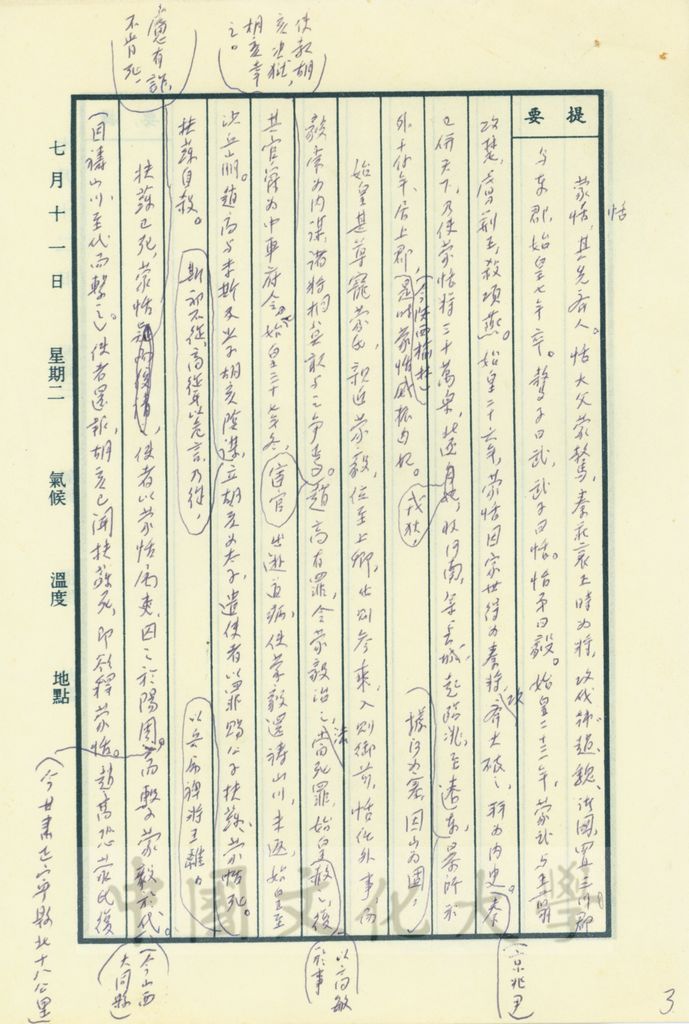 提要
蒙恬，其先齊人。恬大父蒙驁，秦莊襄王時為將，攻伐韓趙魏諸國，置三川郡
恬
與東郡，始皇七年卒。驁子曰武，武子曰恬。恬弟曰毅。始皇二十三年，蒙武與王翦
攻楚，虜荊王，殺項燕。始皇二十六年，蒙恬因家世得為秦將，攻齊大破之，拜為內史。秦
（京兆尹）
已併天下，乃使蒙恬將三十萬眾，北逐戎狄，收河南，築長城，起臨洮，至遼東，暴師於
（據河為塞，因山為固，）
外十餘年，居上郡，（今陝西榆林）是時蒙恬威振匈奴。
始皇甚尊寵蒙氏，親近蒙毅，位至上卿，出則參乘，入則御前，恬任外事，而
毅常為內謀，諸將相莫敢與之爭焉。趙高有罪，令蒙毅法治之，當死罪，始皇赦之，復
以高敏於事
其官爵為中車府令。始皇三十七年冬，出遊道病，使蒙毅還禱山川，未返，始皇至
宦官
沙丘崩。趙高與李斯及少子胡亥陰謀，立胡亥為太子，遣使者以罪賜公子扶蘇、蒙恬死。
使教胡亥決獄，胡亥幸之。
斯初不從，高從以危言，乃從，
扶蘇自殺。
以兵屬裨將王離
扶蘇已死，蒙恬，使者以蒙恬屬吏，囚之於陽周。而擊蒙毅於代。
慮有詐，不肯死，
（今山西大同縣）
（因禱山川至代而擊之）。使者還報，胡亥已聞扶蘇死，即欲釋蒙恬。趙高恐蒙氏復
（今甘肅正寧縣北十八公里）
七月十一日 星期二 氣候 溫度 地點
中國文化大學
3